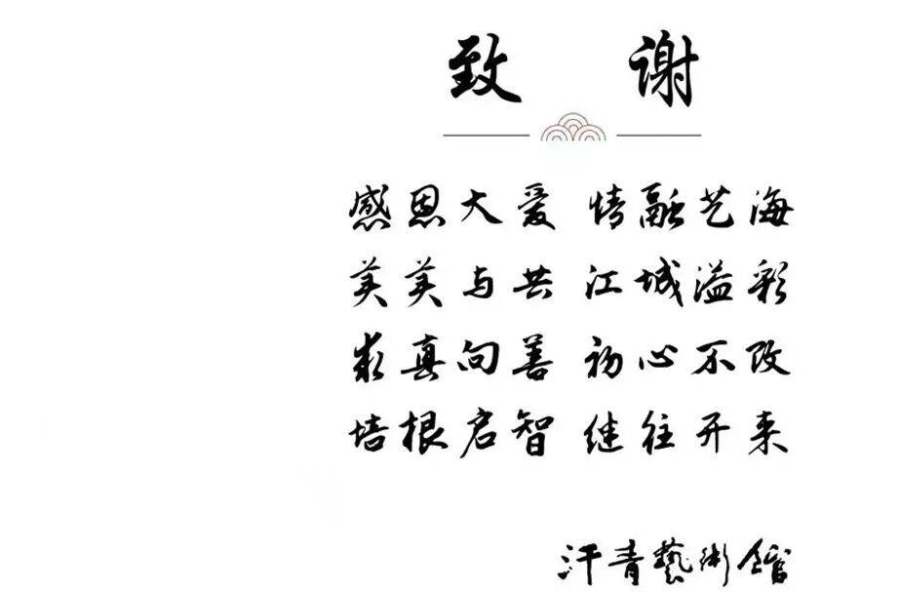 致 谢
感恩大爱 情融艺海
美美与共 江城溢彩
求真向善 初心不改
培根启智 继往开来
汗青藝術館